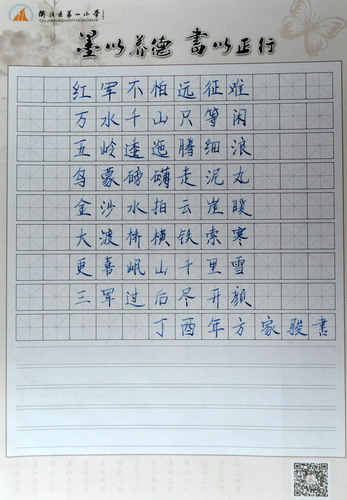 衢江区第一小学
QUJIANGQUDIYIXIAOXUE
墨以养德 書以正行
红军不怕远征难
万水千山只等闲
五岭逶迤腾细浪
乌蒙磅礴走泥丸
金沙水拍云崖暖
大渡桥横铁索寒
更喜岷山千里雪
三军过后尽开颜
丁酉年方家骏書